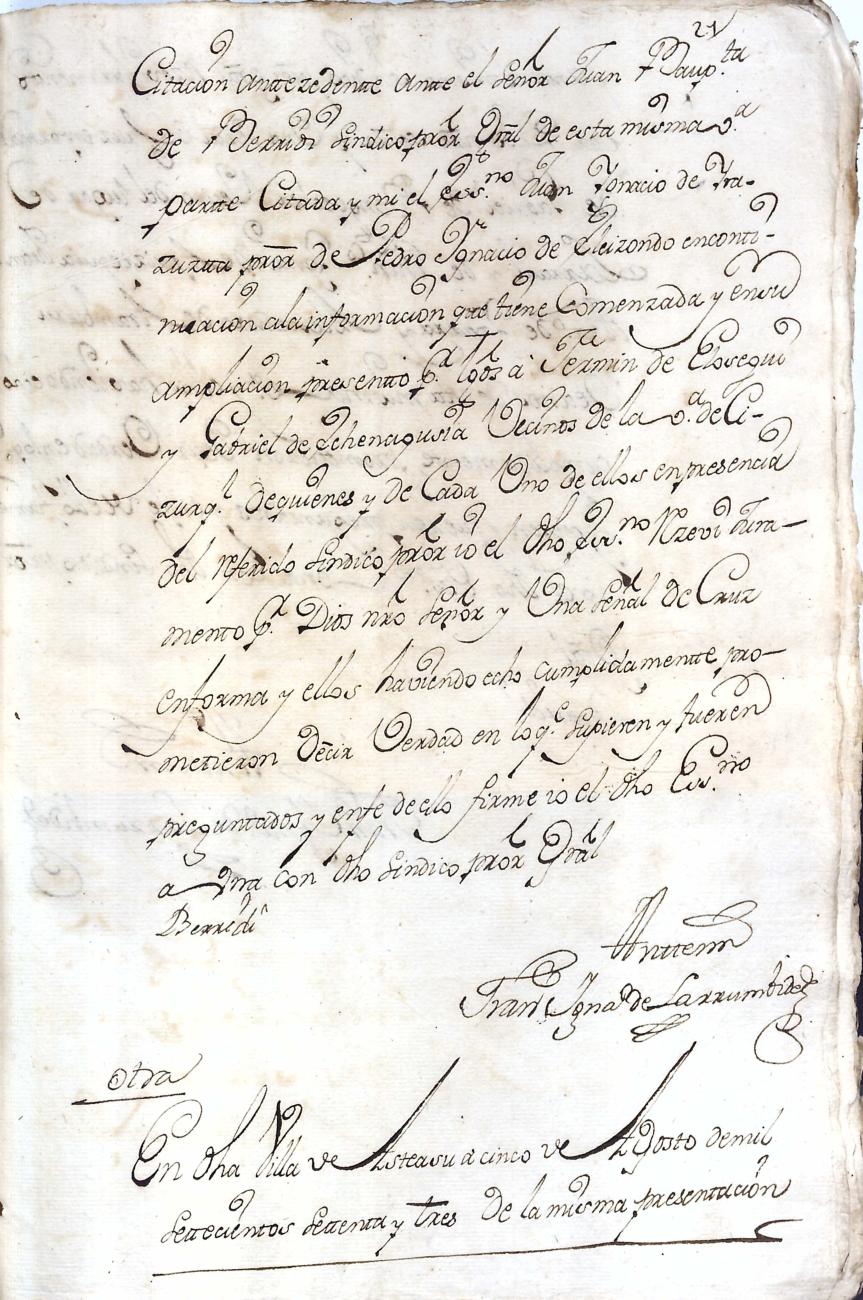 21
Citacion antezedente ante el señor Juan Baup.ta
de Berridi sindico prõr Grãl de esta misma v.a
parte Citada y mi el ess.no Juan Ignacio de Yra-
zuzta prõr de Pedro Ygnacio de Eleizondo en conti-
nuacion a la informacion que tiene Comenzada y en su
ampliacion presento p.a t̃gos a Fermin de Elosegui
y Gabriel de Echenagusia Vecinos de la v.a de Ci-
zurq.l de quienes y de Cada Uno de ellos en presencia
del referido sindico prõr io el dho ess.no Rzevi Jura-
mento p.r Dios nrõ señor y Una señal de Cruz
en forma y ellos haviendo echo cumplidamente pro-
metieron decir Verdad en lo q.e supieren y fueren
preguntados y en fe de ello firme io el dho Ess.no
a Una con dho sindico prõr Grãl
Berridi
Anttemi
Fran.co Ygna.o de Larrumbide
Otra
En dha Villa de Asteasu a cinco de Agosto de mil
settecientos settenta y tres de la misma presentacion